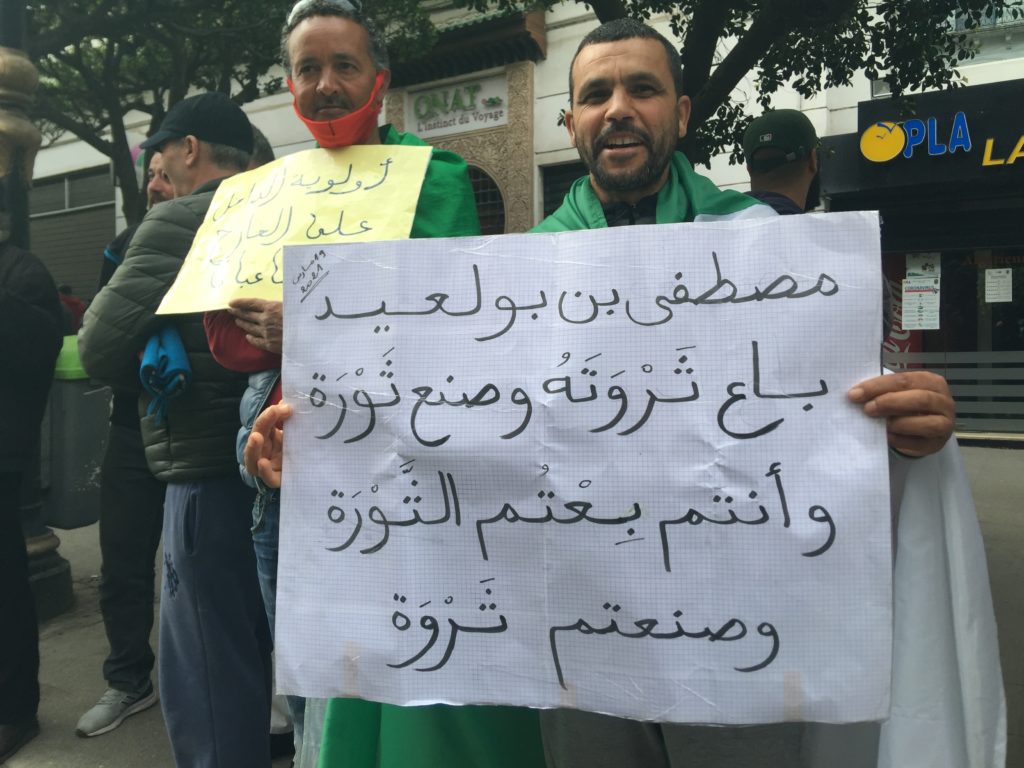 ONAT
L'instinct du Voyage
OPLA
LA
أولوية
على
19 مارس
2021
مصطفى بن بولعيد
باع ثَرْوَتَهُ وصنع ثَوْرَة
وأنتم بِعْتُم الثَّوْرَة
وصنعتم ثَرْوَة